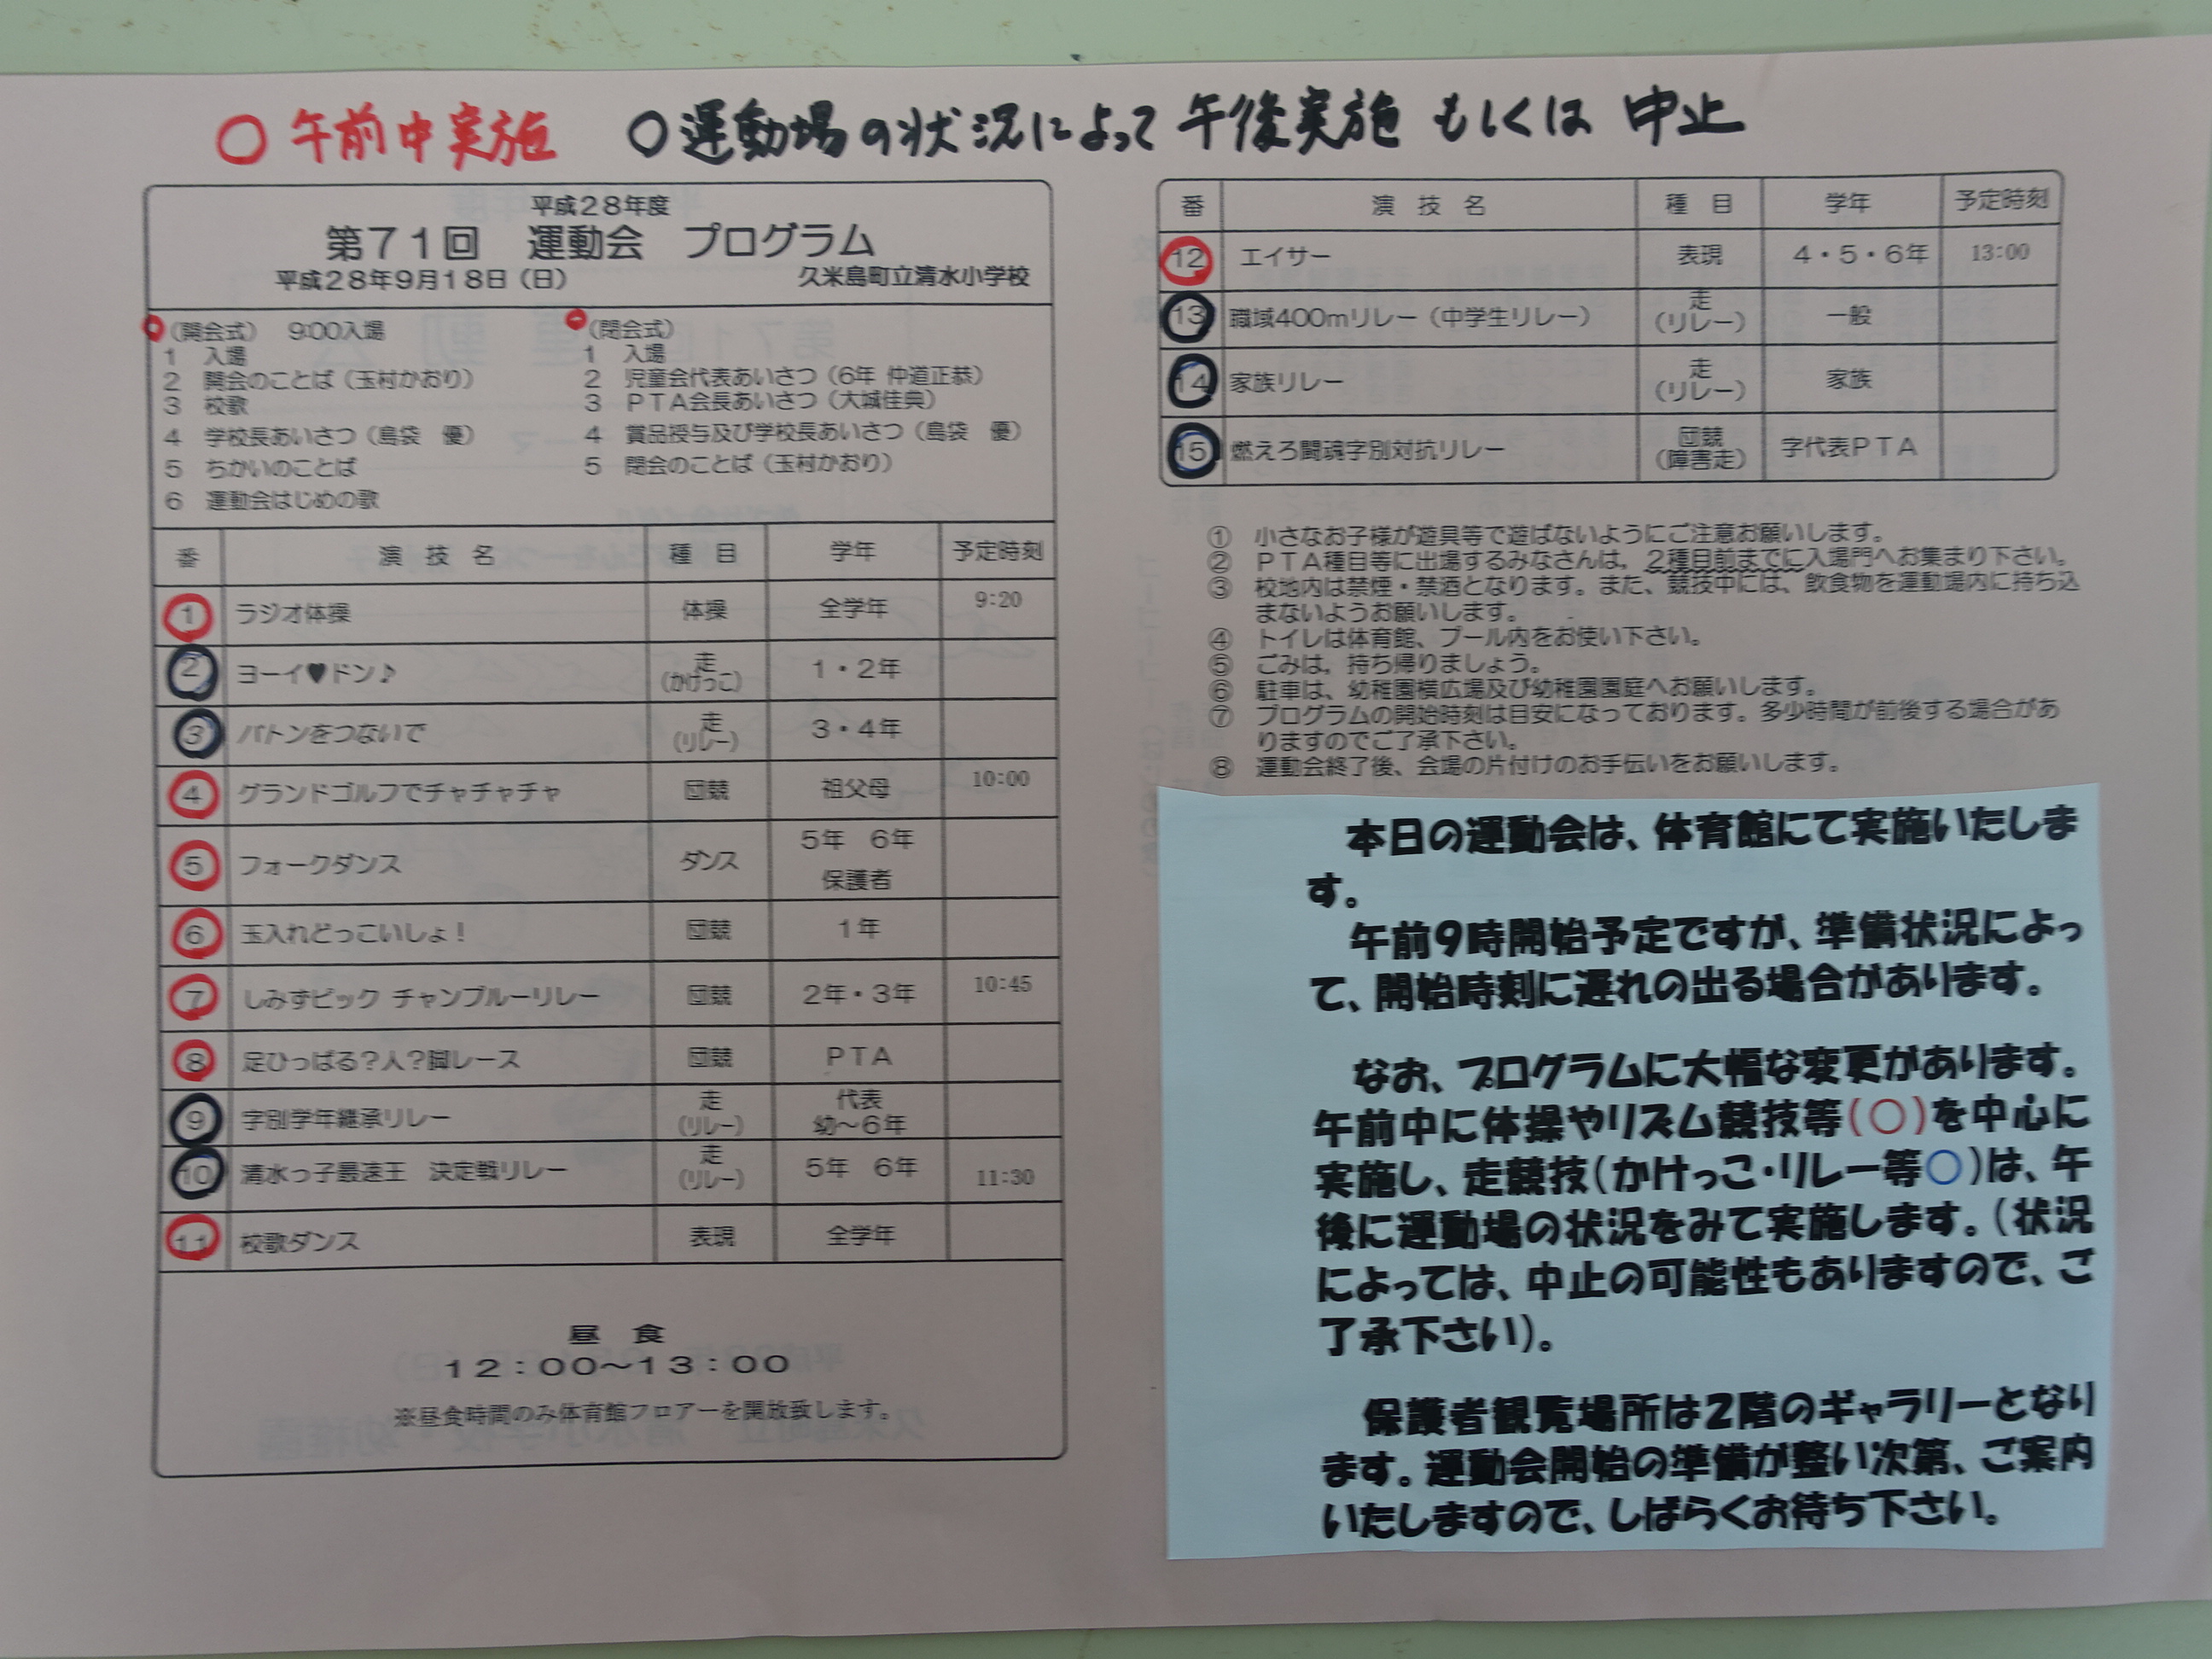 ○午前中実施 ○運動場の状況によって午後実施もしくは中止
平成28年度
第71回 運動会 プログラム
平成28年9月18日(日) 久米島町立清水小学校
(開会式) 9:00入場
1 入場
2 開会のことば(玉村かおり)
3 校歌
4 学校長あいさつ(島袋 優)
5 ちかいのことば
6 運動会はじめの歌
(閉会式)
1 入場
2 児童会代表あいさつ(6年 仲道正恭)
3 PTA会長あいさつ(大城佳典)
4 賞品授与及び学校長あいさつ(島袋 優)
5 閉会のことば(玉村かおり)
番 演技名 種目 学年 予定時刻
1 ラジオ体操 体操 全学年 9:20
2 ヨーイ♥ドン♪ 走(かけっこ) 1・2年
3 バトンをつないで 走(リレー) 3・4年
4 グランドゴルフでチャチャチャ 団競 祖父母 10:00
5 フォークダンス ダンス 5年 6年 保護者
6 玉入れどっこいしょ! 団競 1年
7 しみずピック チャンプルーリレー 団競 2年・3年 10:45
8 足ひっぱる?人?脚レース 団競 PTA
9 字別学年継承リレー 走(リレー) 代表 幼~6年
10 清水っ子最速王 決定戦リレー 走(リレー) 5年 6年 11:30
11 校歌ダンス 表現 全学年
昼 食
12:00~13:00
※昼食時間のみ体育館フロアーを開放致します。
番 演技名 種目 学年 予定時刻
12 エイサー 表現 4・5・6年 13:00
13 職域400mリレー(中学生リレー) 走(リレー) 一般
14 家族リレー 走(リレー) 家族
15 燃えろ闘魂字別対抗リレー 団競(障害走) 字代表PTA
① 小さなお子様が遊具等で遊ばないようにご注意お願いします。
② PTA種目等に出場するみなさんは,2種目前までに入場門へお集まり下さい。
③ 校地内は禁煙・禁酒となります。また、競技中には、飲食物を運動場内に持ち込
まないようお願いします。
④ トイレは体育館、プール内をお使い下さい。
⑤ ごみは,持ち帰りましょう。
⑥ 駐車は、幼稚園横広場及び幼稚園園庭へお願いします。
⑦ プログラムの開始時刻は目安になっております。多少時間が前後する場合があ
りますのでご了承下さい。
⑧ 運動会終了後、会場の片付けのお手伝いをお願いします。
本日の運動会は、体育館にて実施いたしま
す。
午前9時開始予定ですが、準備状況によっ
て、開始時刻に遅れの出る場合があります。
なお、プログラムに大幅な変更があります。
午前中に体操やリズム競技等(○)を中心に
実施し、走競技(かけっこ・リレー等○)は、午
後に運動場の状況をみて実施します。(状況
によっては、中止の可能性もありますので、ご
了承下さい)。
保護者観覧場所は2階のギャラリーとなり
ます。運動会開始の準備が整い次第、ご案内
いたしますので、しばらくお待ち下さい。